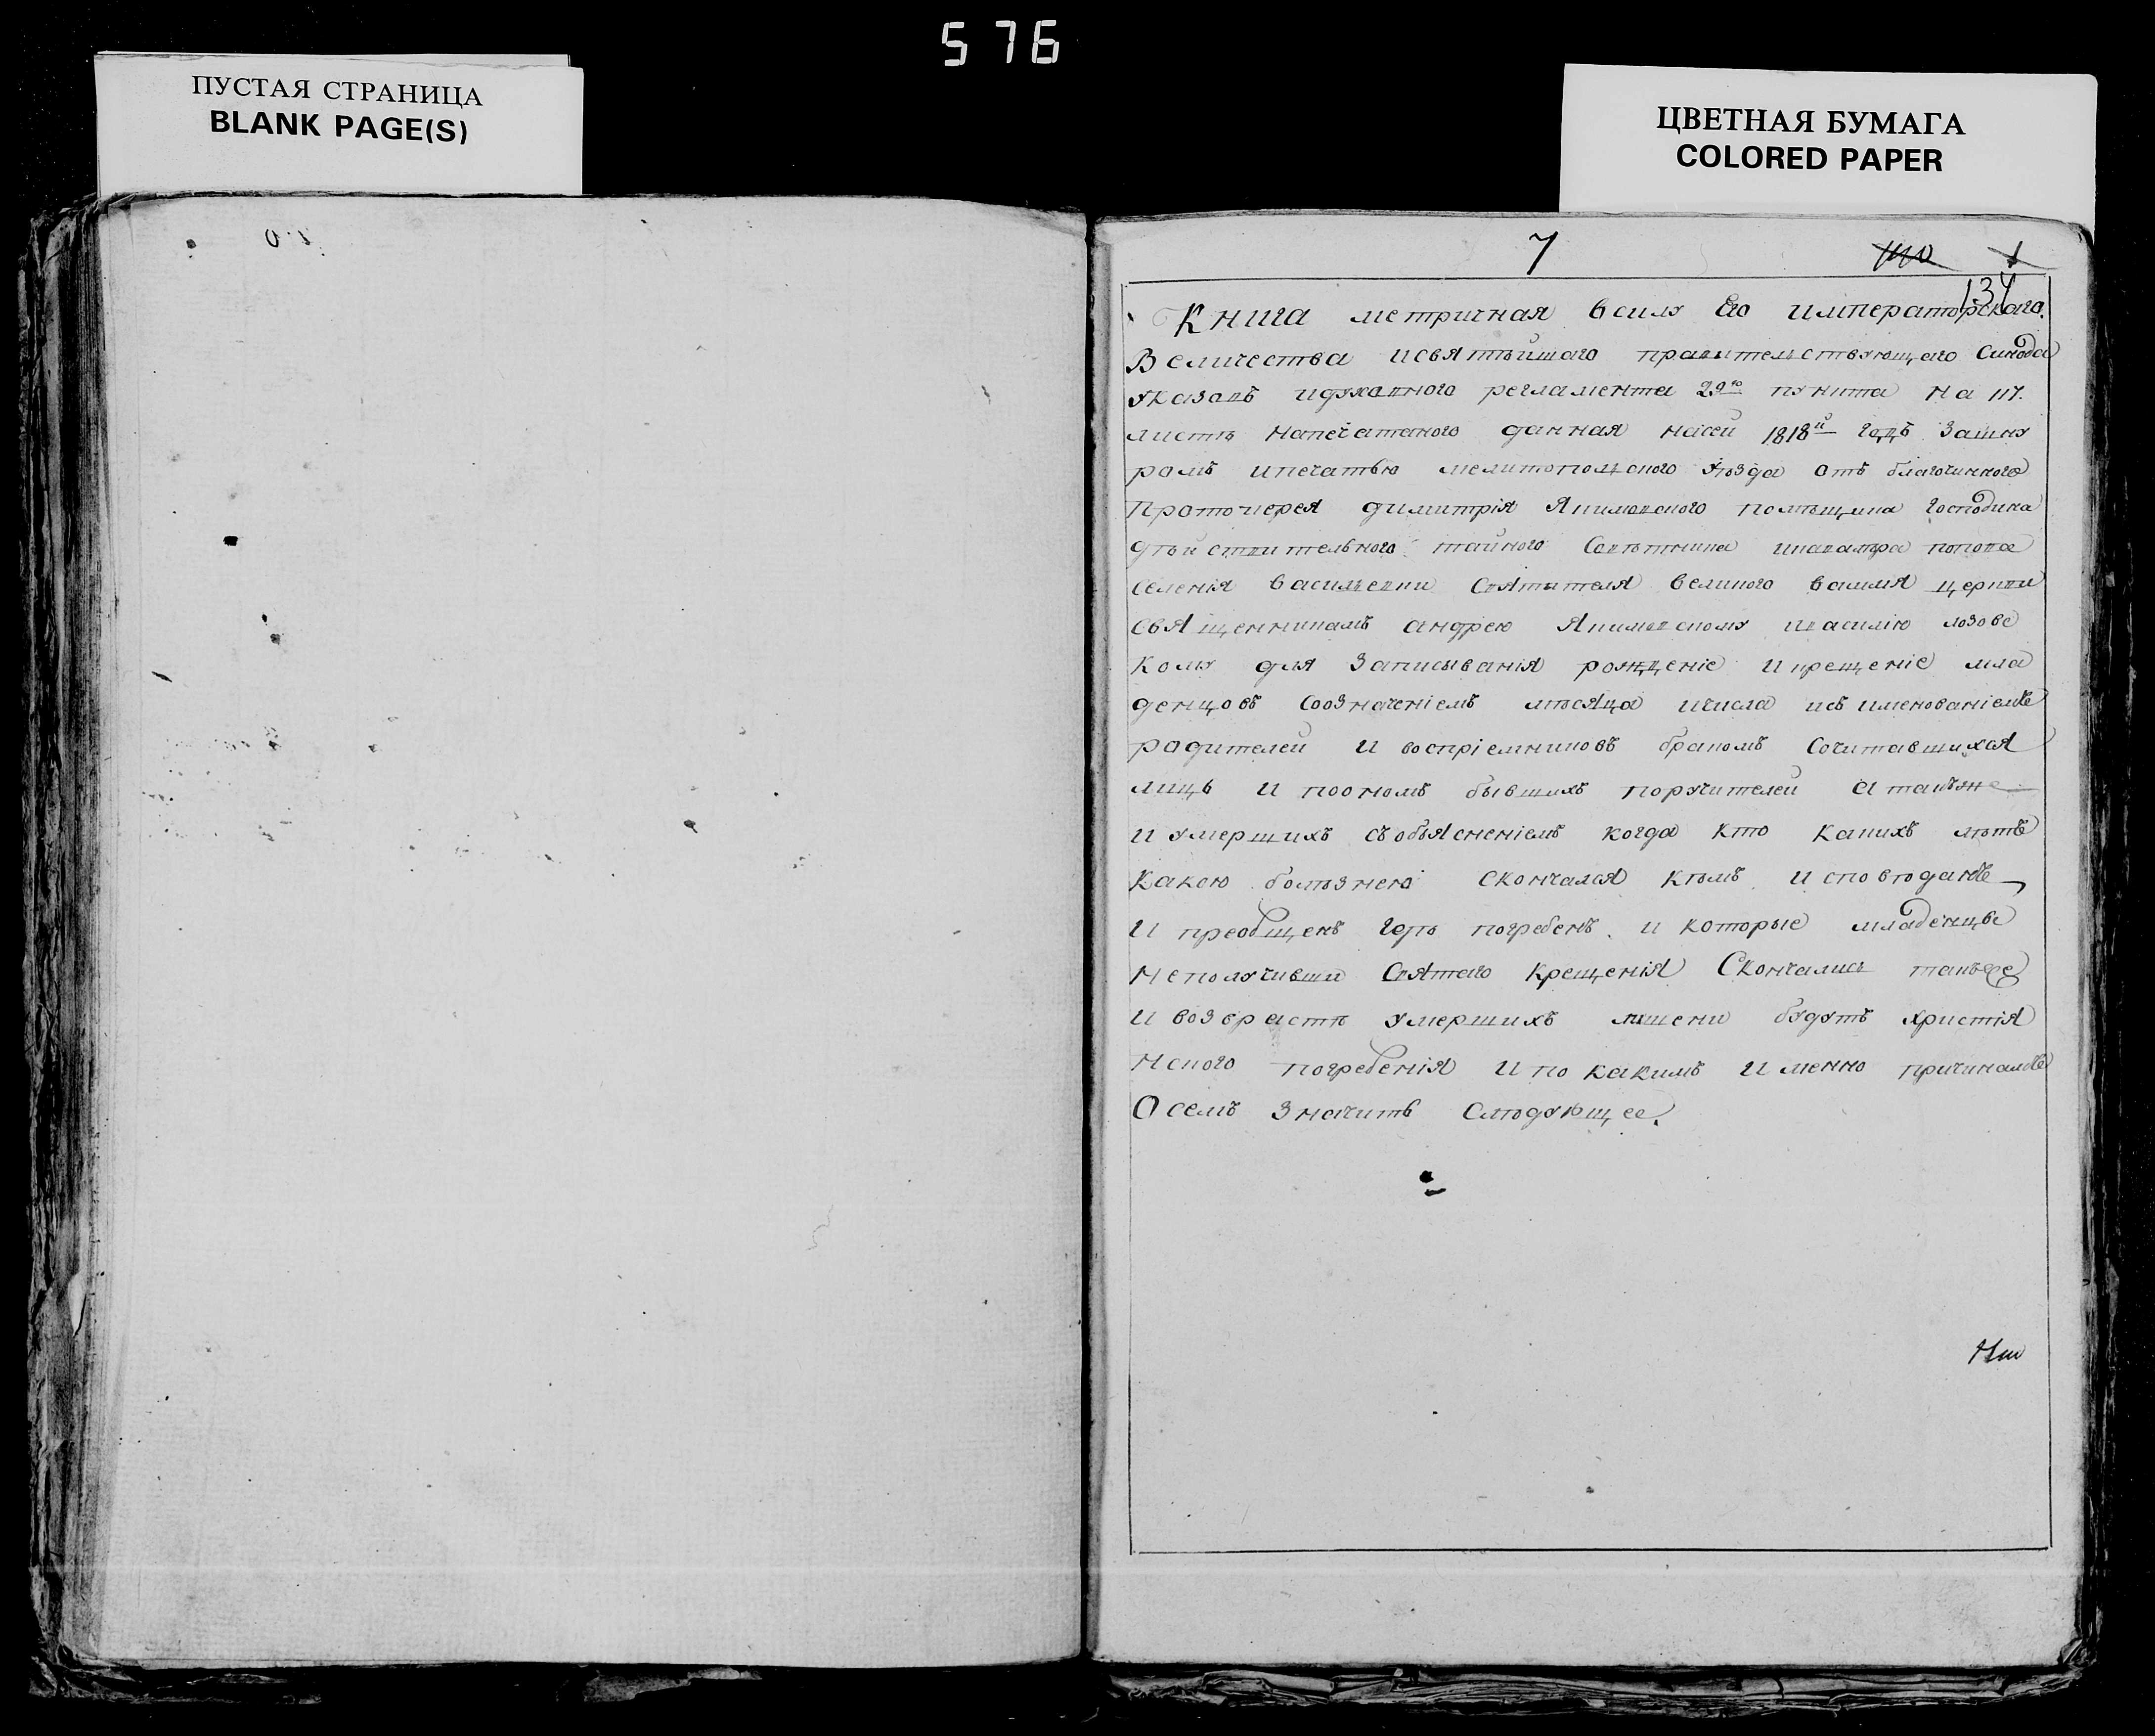 576
ПУСТАЯ СТРАНИЦА
BLANK PAGE(S)
ЦВЕТНАЯ БУМАГА
COLORED PAPER
7
134
Книга метричная всилу Его императорскаго
Величества исвятѣйшаго правительствующаго Синода
указовъ идуховного регламента 29го пункта на 117.
листѣ напечатаного данная насей 1818й годъ зашну
ромъ ипечатью мелитопольского уѣзда отъ благочинного
Протоиерея димитрія Якимовского помѣщика господина
дѣйствительного тайного Совѣтника попова
селенія васильевки Святителя великого василия церкви
священникамъ андрею Якимовскому ивасилію лозовс
кому для записыванія рожденіе икрещеніе мла
денцовъ Соозначеніемъ мѣсяца ичисла исъименованіемъ
родителей и воспріемниковъ бракомъ Сочитавшихся
лицъ и поономъ бывшихъ поручителей Атакъже
и умершихъ съобъясненіемъ когда кто какихъ лѣтъ
какою болѣзнею скончался кѣмъ исповѣданъ
и преобщенъ гдѣ погребенъ и которые младенцы
неполучивши Святаго крещенія Скончались такъже
и возврастѣ умершихъ лишени будутъ христія
нского погребенія ипо какимъ именно причинамъ
О семъ значитъ слѣдующее.